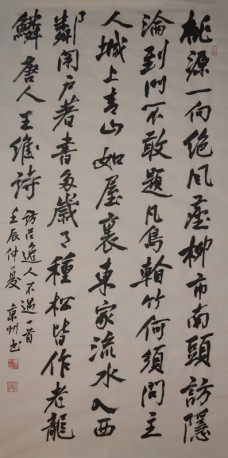 桃源一向绝风塵柳市南頭訪隱
淪到门不敢題凡鸟看竹何须问主
人城上青山如屋裏東家流水入西
鄰闭户著書多歲月種松皆作老龍
鱗唐人王維詩
訪吕逸人不遇一首
壬辰仲夏
州书